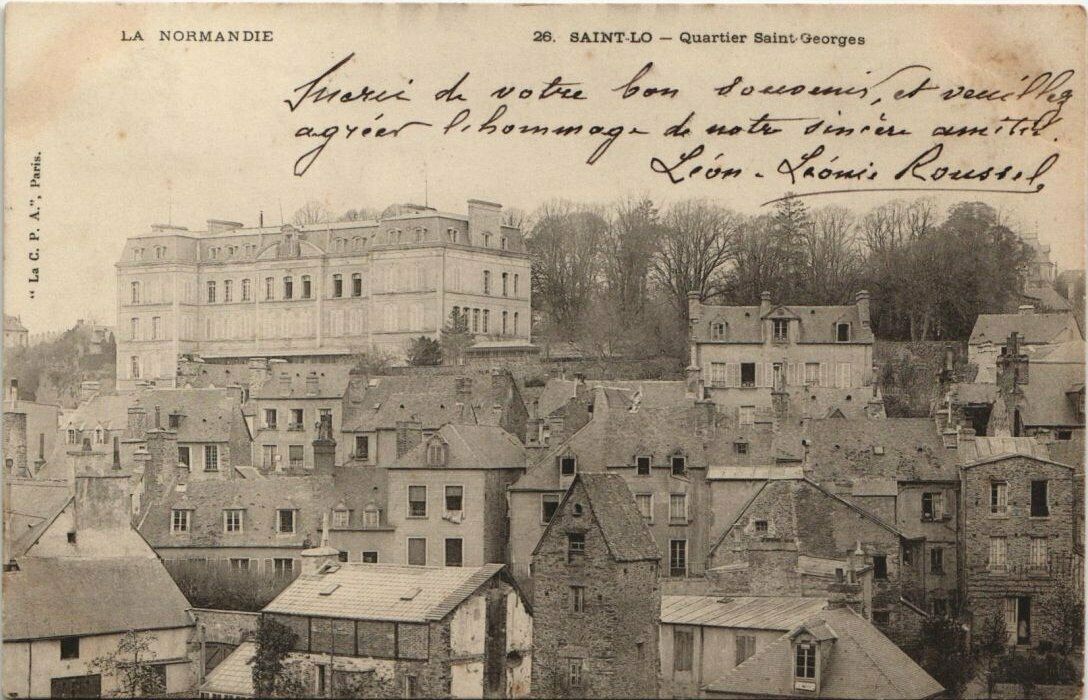 LA NORMANDIE
26. SAINT-LO — Quartier Saint-Georges
Merci de votre bon souvenir, et veuillez
agréer l'hommage de notre sincère amitié.
Léon - Léonie Roussel
"La C. P. A.", Paris.